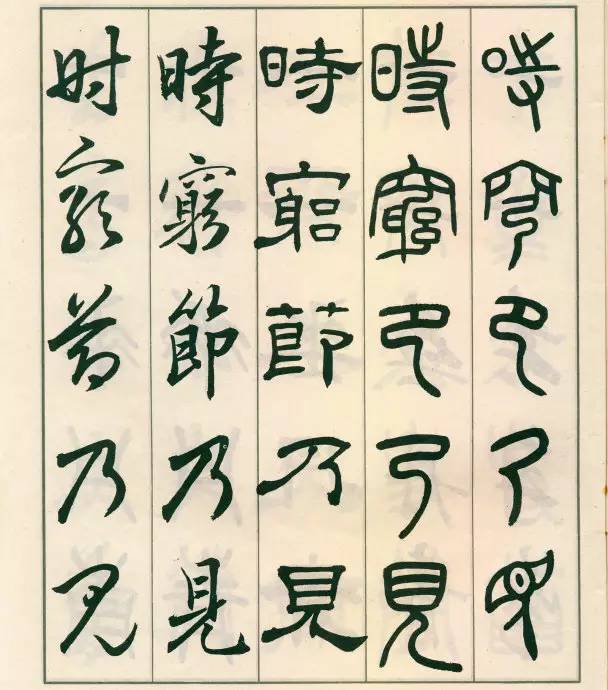 時窮節乃見
時窮節乃見
時窮節乃見
時窮節乃見
時窮節乃見